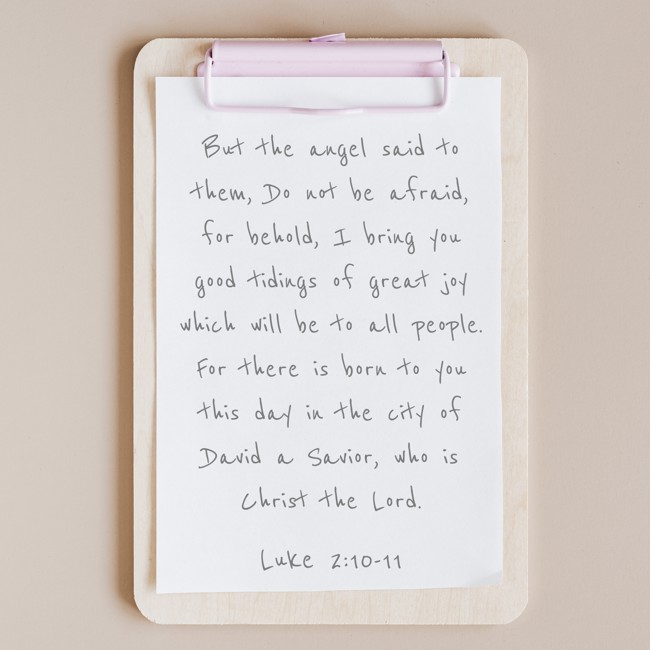 But the angel said to
them, Do not be afraid,
for behold, I bring you
good tidings of great joy
which will be to all people.
For there is born to you
this day in the city of
David a Savior, who is
Christ the Lord.
Luke 2:10-11